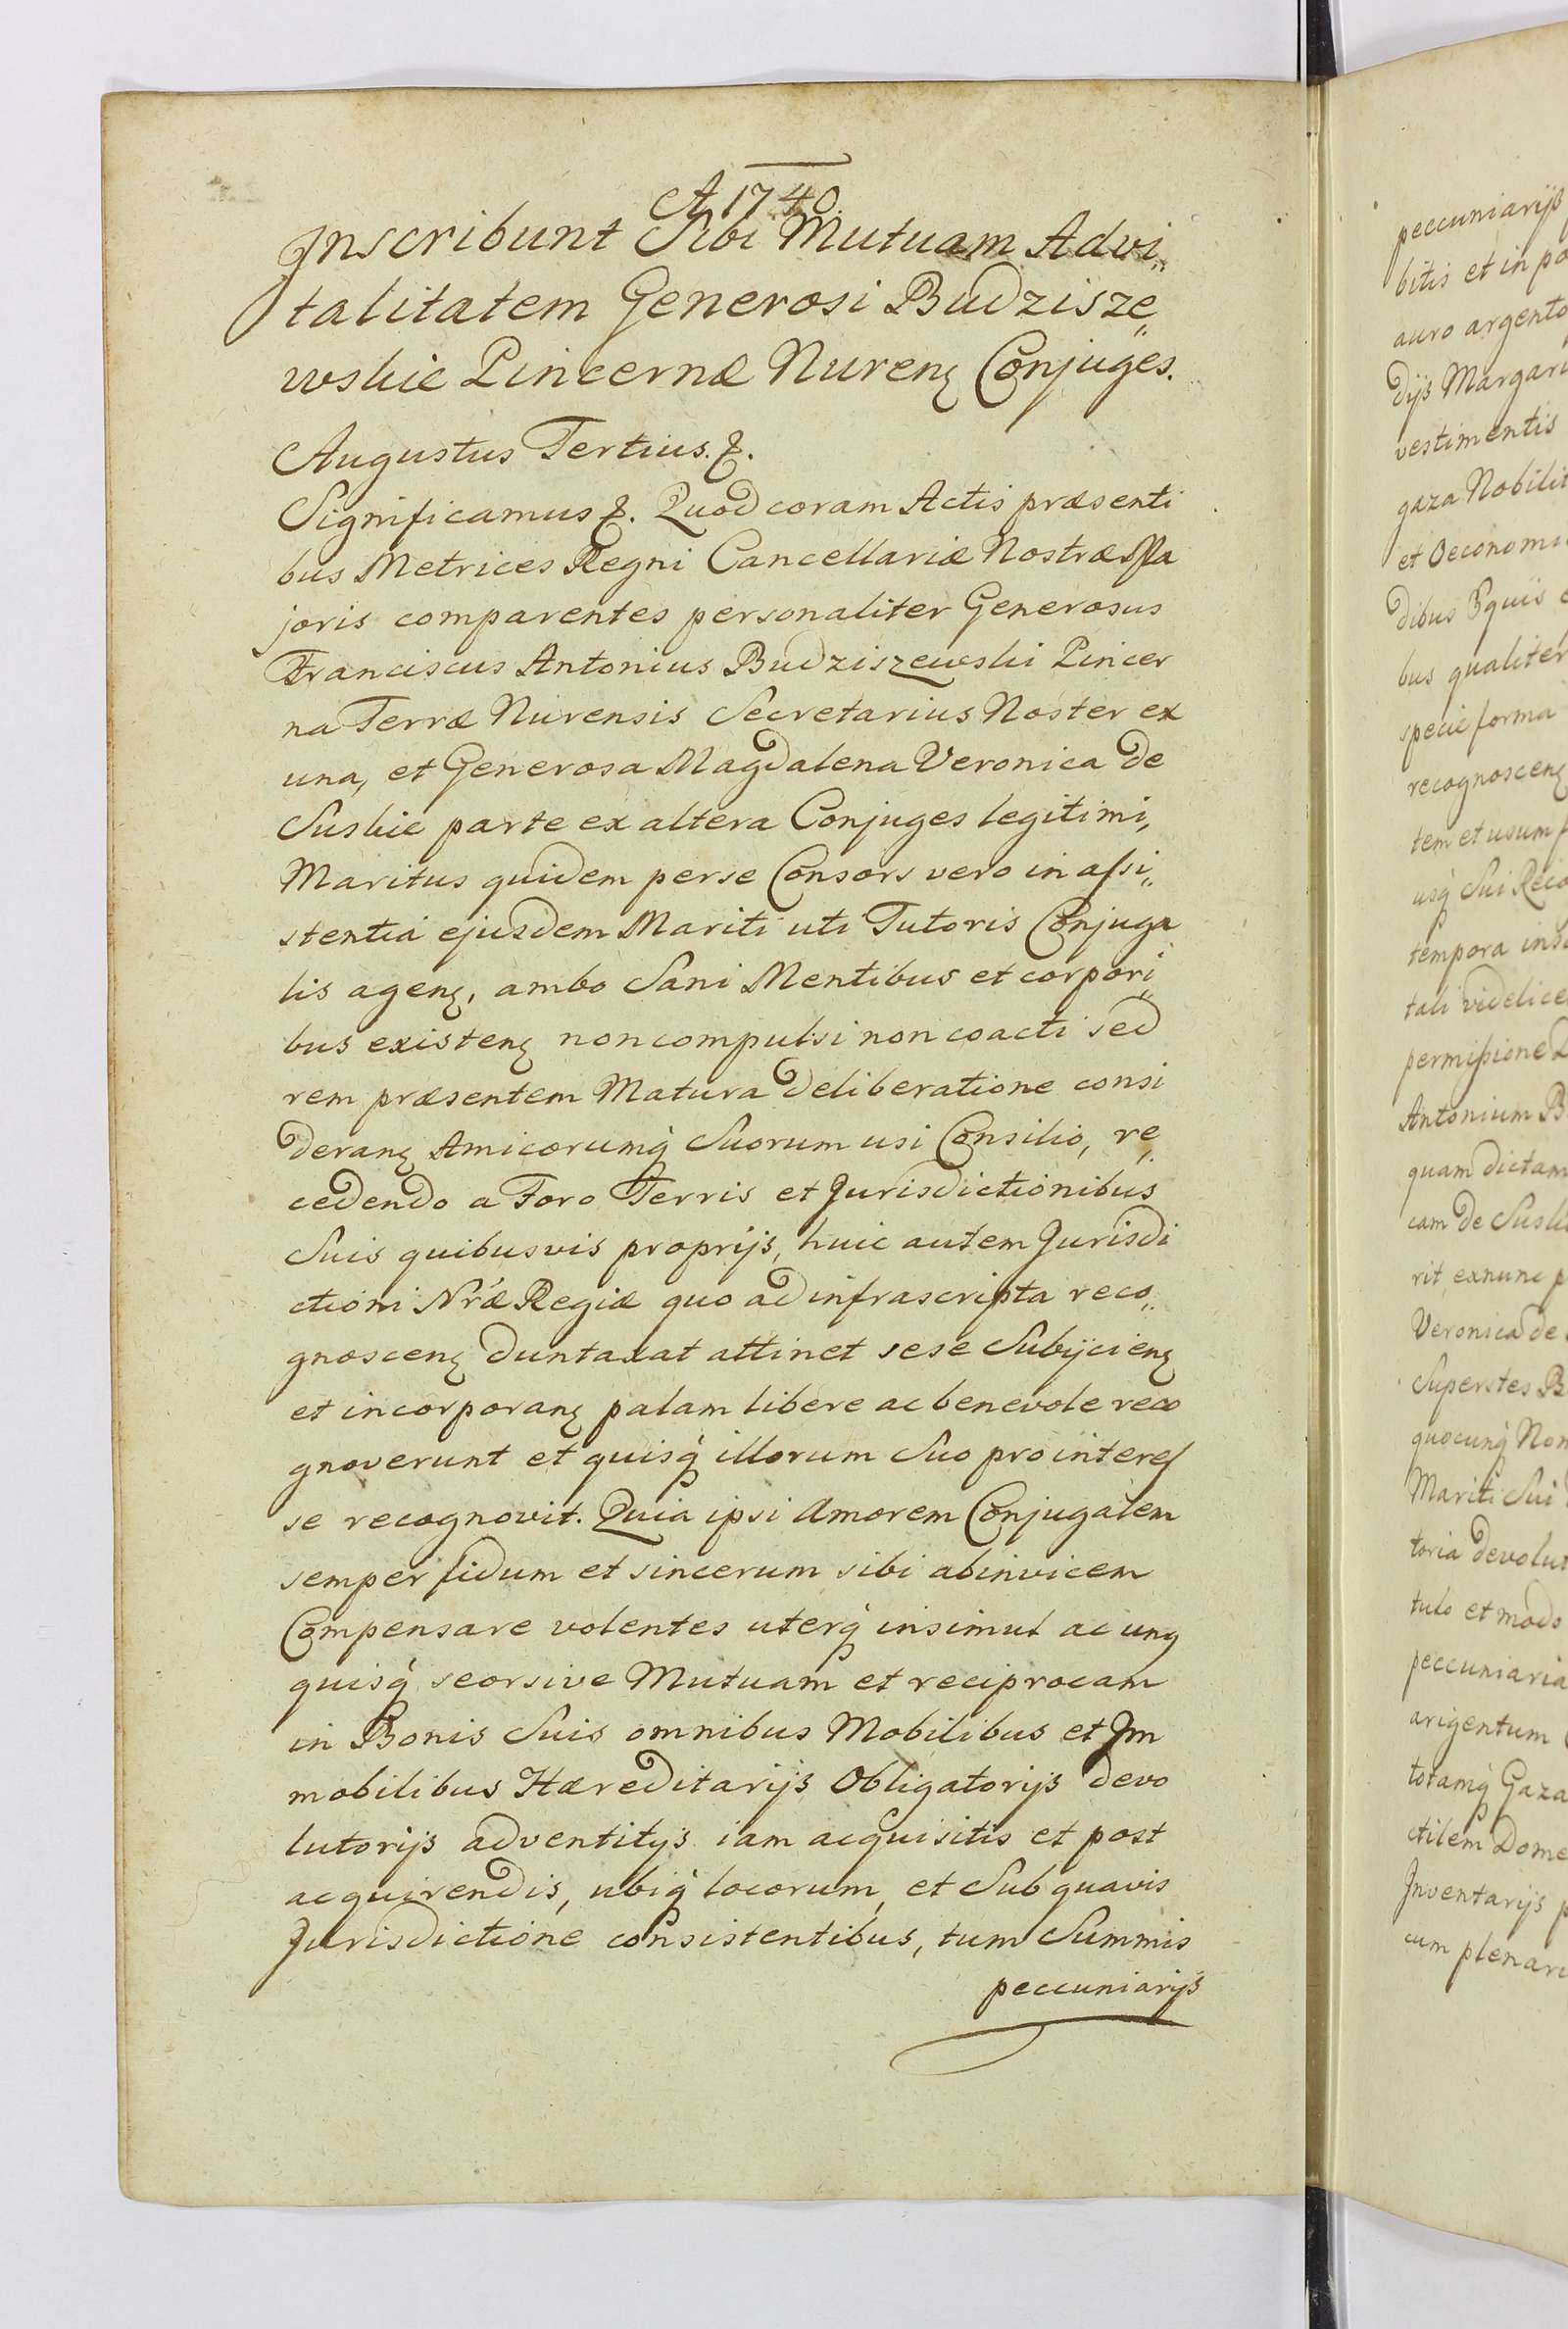 A 1740.
Inscribunt Sibi Mutuam Advi„
talitatem Generosi Budzisze„
wskie Pincernæ Nurenʒ Conjuges.
Augustus Tertius. &.
Significamus &. Quod coram Actis præsenti
bus Metrices Regni Cancellariæ Nostræ Ma
joris comparentes personaliter Generosus
Franciscus Antonius Budziszewski Pincer
na Terræ Nurensis Secretarius Noster ex
una, et Generosa Magdalena Veronica de
Suskie parte ex altera Conjuges legitimi,
Maritus quidem per se Consors vero in assi„
stentia ejusdem Mariti uti Tutoris Conjuga
lis agenʒ, ambo Sani Mentibus et corpori„
bus existenʒ non compulsi non coacti sed
rem præsentem Matura deliberatione consi
deranʒ Amicorumq́ Suorum usi Consilio, re„
cedendo a Foro Terris et Jurisdictionibus
Suis quibusvis proprijs, huic autem Jurisdi
ctioni Nr̃æ Regiæ quo ad infrascripta reco„
gnoscenʒ duntaxat attinet sese Subijcienʒ
et incorporanʒ palam libere ac benevole reco
gnoverunt et quisq́ illorum Suo pro interes
se recognovit. Quia ipsi Amorem Conjugalem
semper fidum et sincerum sibi abinvicem
Compensare volentes uterq́ insimul ac unꝰ
quisq́ seorsive Mutuam et reciprocam
in Bonis Suis omnibus Mobilibus et Im
mobilibus Hæreditarijs Obligatorijs devo
lutorijs adventitijs iam acquisitis et post
acquirendis, ubiq́ locorum, et Sub quavis
Jurisdictione consistentibus, tum Summis
peccuniarijs
peccuniarijs
bitis et in
auro argento
dijs
vestimentis
gaza
et
dibus Equis
bus qualiter
specie forma
recognoscenʒ
tem et usum
usq́ Sui
tempora
tali
permissione
Antonium
quam dictam
cam de
rit exnunc
Veronica de
Superstes
quocunq́
Mariti Sui
toria
tulo et modo
peccuniaria
arigentum
totamq́ Gaza
ctilem
Inventarijs
cum